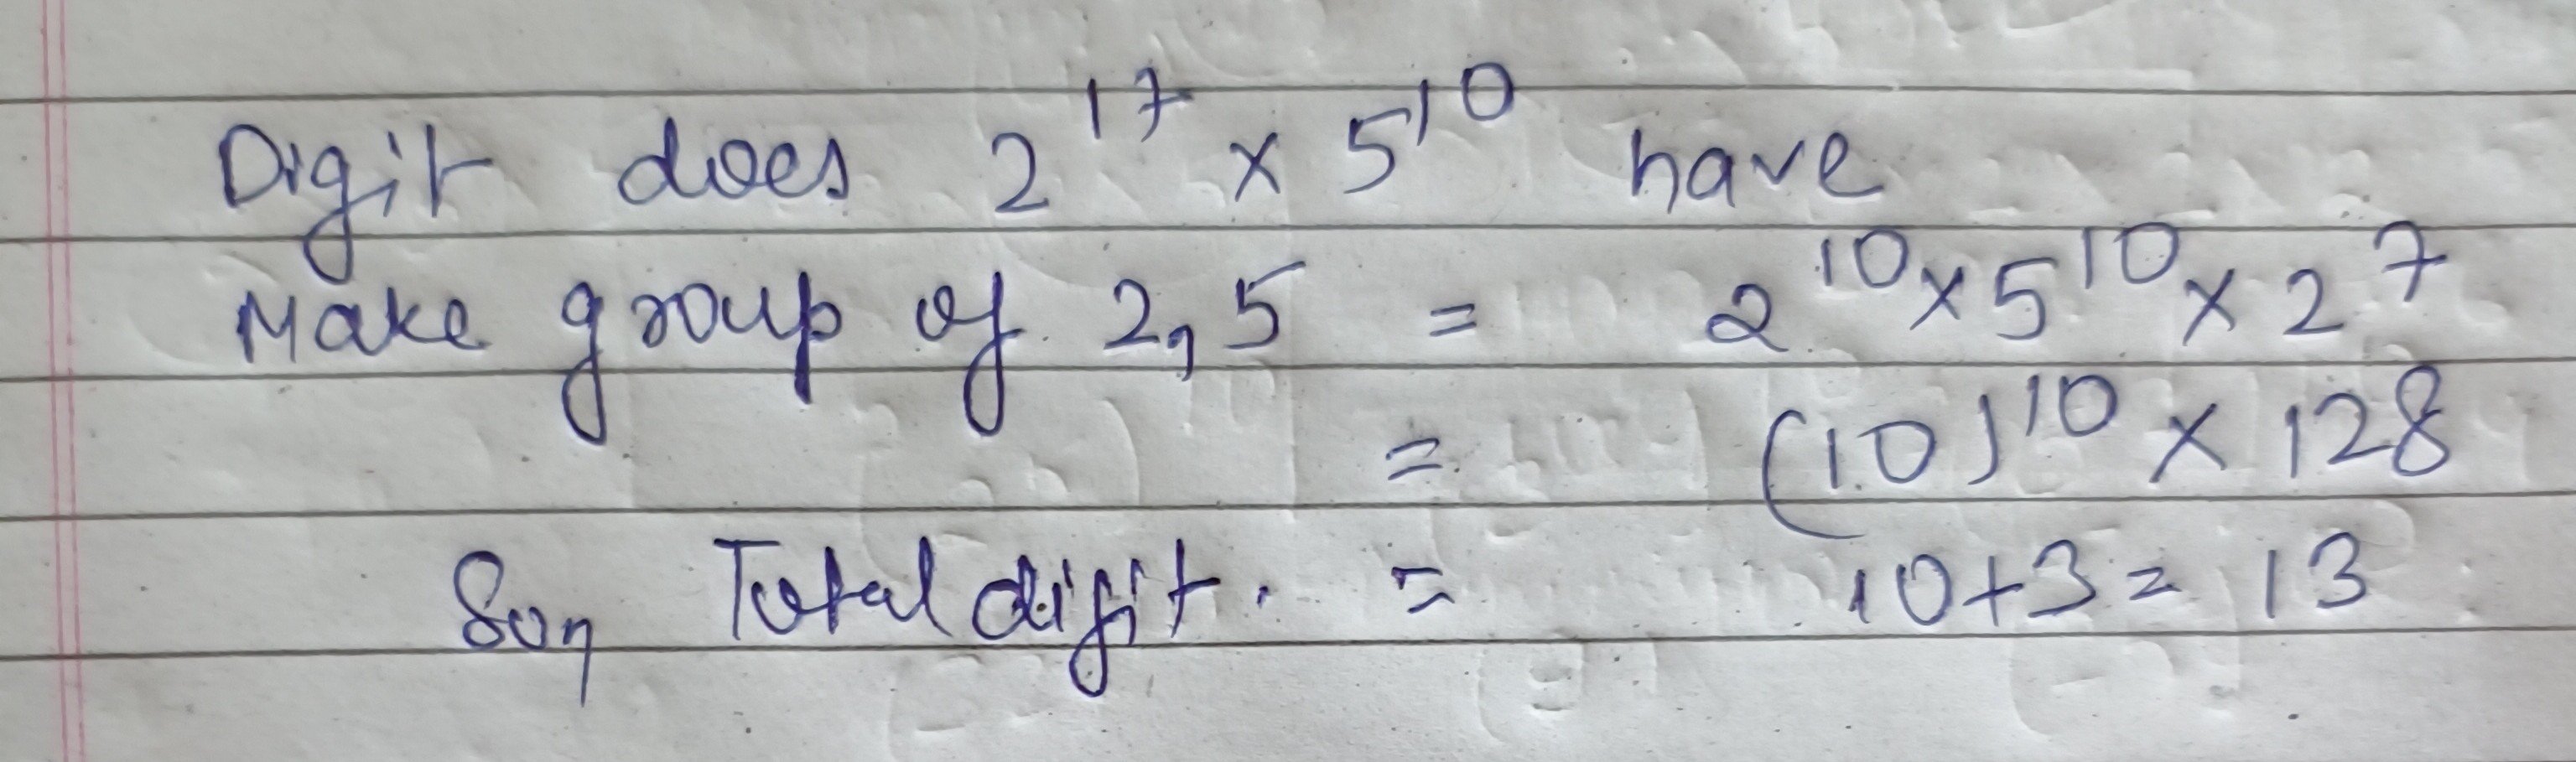 Digit does 2^17 × 5^10 have
Make group of 2,5 = 2^10 × 5^10 × 2^7
= (10)^10 × 128
So, Total digit. = 10+3 = 13